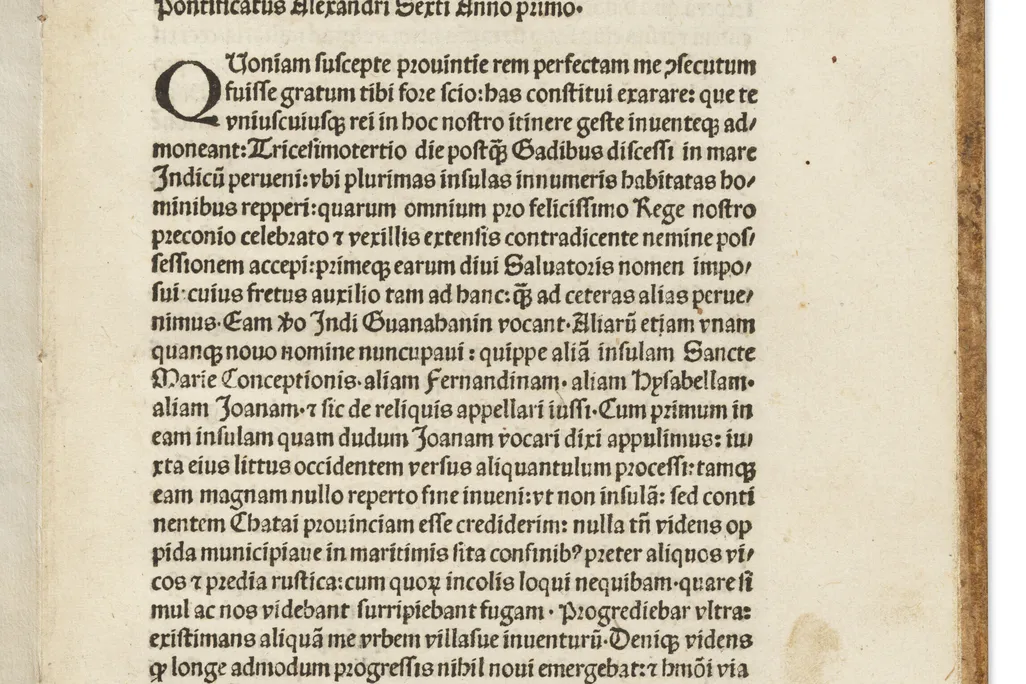 Pontificatus Alexandri Sexti Anno primo.
QUoniam suscepte prouintie rem perfectam me ꝯsecutum
fuisse gratum tibi fore scio: has constitui exarare: que te
vniuscuiusqꝫ rei in hoc nostro itinere geste inuenteqꝫ ad/
moneant: Tricesimotertio die postqꝫ̄ Gadibus discessi in mare
Indicū perueni: vbi plurimas insulas innumeris habitatas ho/
minibus repperi: quarum omnium pro felicissimo Rege nostro
preconio celebrato ⁊ vexillis extensis contradicente nemine pos/
sessionem accepi: primeqꝫ earum diui Saluatoris nomen impo/
sui: cuius fretus auxilio tam ad hanc: qꝫ̄ ad ceteras alias perue/
nimus. Eam v̄o Indi Guanahanin vocant. Aliarū etiam vnam
quanqꝫ nouo nomine nuncupaui: quippe aliā insulam Sancte
Marie Conceptionis. aliam Fernandinam. aliam Hysabellam.
aliam Joanam. ⁊ sic de reliquis appellari iussi. Cum primum in
eam insulam quam dudum Joanam vocari dixi appulimus: iu/
xta eius littus occidentem versus aliquantulum processi: tamqꝫ
eam magnam nullo reperto fine inueni: vt non insulā: sed conti
nentem Chatai prouinciam esse crediderim: nulla tn̄ videns op
pida municipiaue in maritimis sita confinibꝰ preter aliquos vi/
cos ⁊ predia rustica: cum quoꝝ incolis loqui nequibam. quare si
mul ac nos videbant surripiebant fugam. Progrediebar vltra:
existimans aliquā me vrbem villasue inuenturū. Deniqꝫ videns
ꝙ longe admodum progressis nihil noui emergebat: ⁊ hmōi via